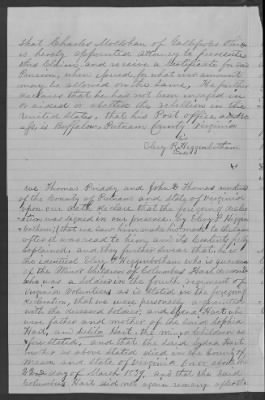 that Charles Mc of Gallipolis Ohio
is hereby appointed attorney to prosecute
this Claim, and receive a Certificate for the
Pension, when issued for what ever amount
may be allowed on the same, He further
declares that he had not been engaged in
or aided or abetted the rebellion in the
United States, that his Post office address
is Buffalow, Putnam County, Virginia
his
Eloy R. Higginbotham
mark
we Thomas and John G Thomas residents
of the County of Putnam and State of Virginia
upon our Oath declare that the foregoing declar
ation was signed in our presence, by Eloy R Higgin
botham, that we saw him make his mark to the same
after it was read to him, and its Contents fully
explained, and they further swear that he is
the identical Eloy R Higginbotham who is guardian
of the Minor Children of Columbus Hart deceased
who was a Soldier in the fourth regiment of
Virginia Volunteers as is stated in the foregoing
declaration, that we were personally acquainted
with the deceased Soldier, and Lydia Hart who
were father and mother of the said
Hart, and Hart, the minor Children be
fore stated, and that the said Lydia Hart
mother as above stated died in the County of
Mason and State of Virginia on or about the
day of March 1859, and that the said
Columbus Hart did not again remarry after the